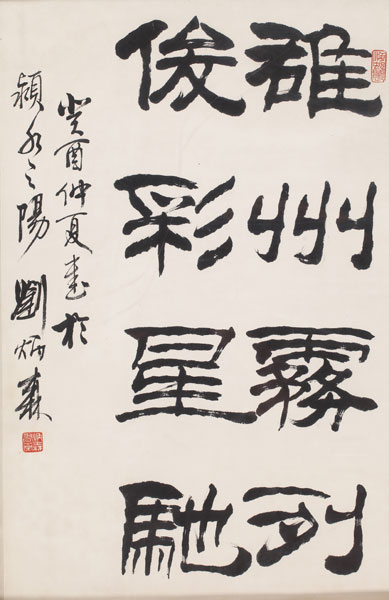 雄州霧列
俊彩星馳
癸酉仲夏書於
潁水之陽 劉炳森